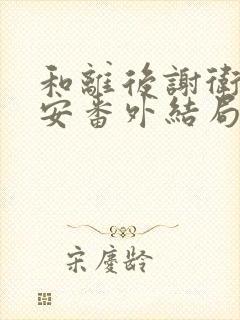 和離後謝衛
安番外結局
宋慶齡